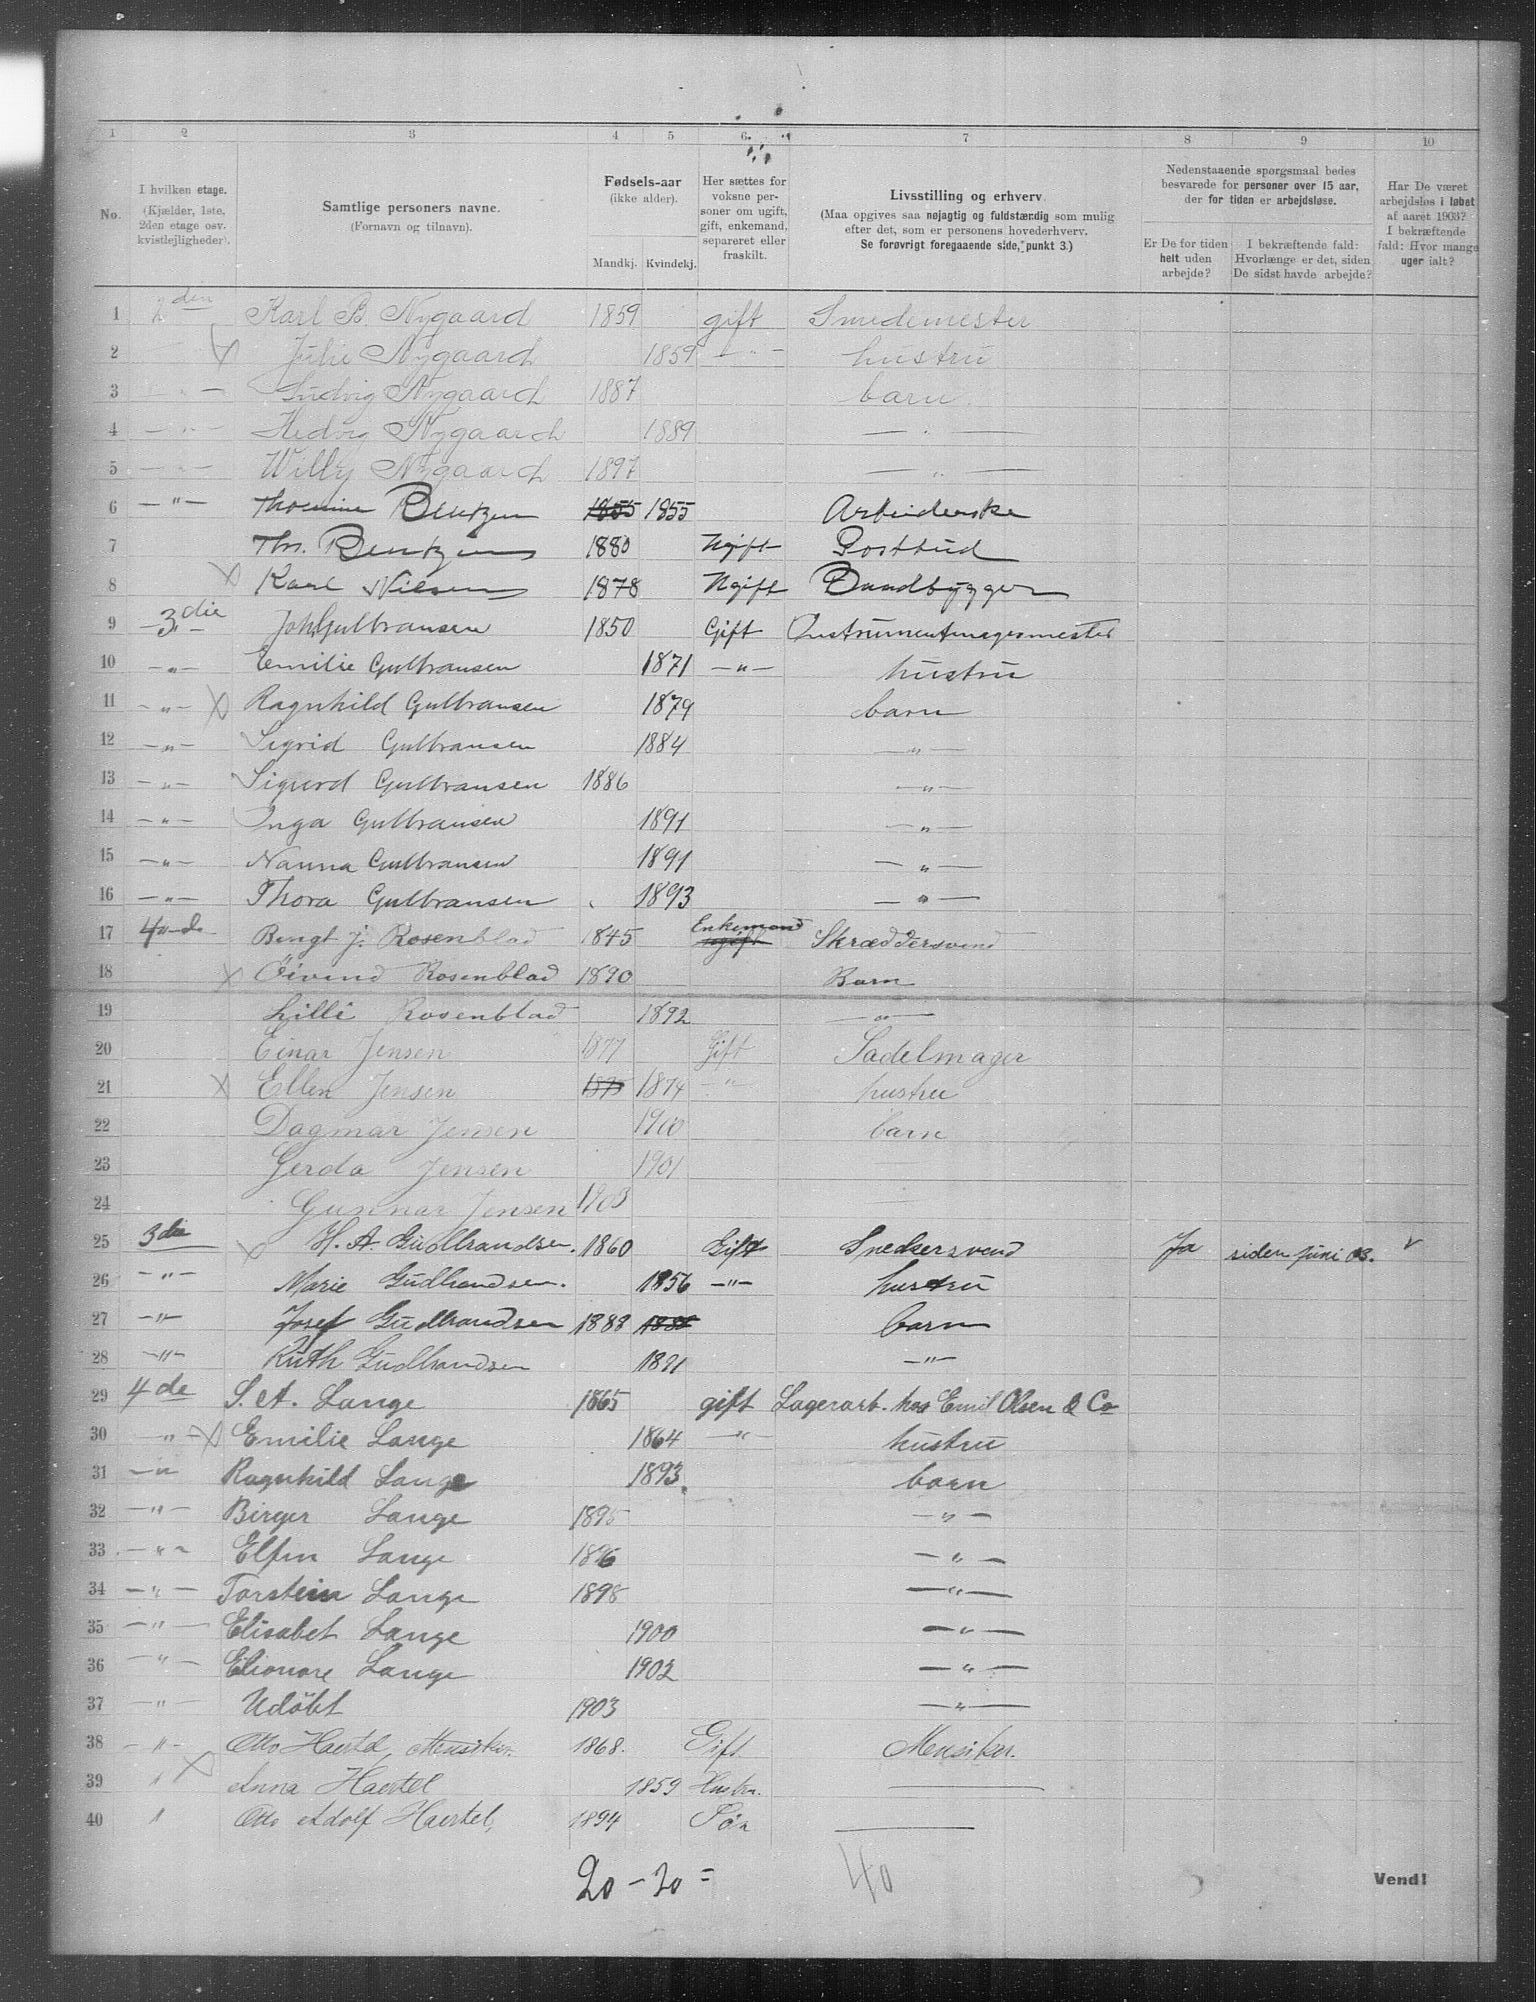 1 2 3 4 5 6. 7 8 9 10
No. I hvilken etage. (Kjælder, 1ste, 2den etage osv. kvistleiligheder). Samtlige personers navne. (Fornavn og tilnavn). Fødsels-aar (ikke alder). Mandkj. Kvindekj. Her sættes for voksne personer om ugift, gift, enkemand, separeret eller fraskilt. Livsstilling og erhverv. (Maa opgives saa nøjagtig og fuldstændig som mulig efter det, som er personens hovederhverv. Se forøvrigt foregaaende side, punkt 3.) Nedenstaaende spørgsmaal bedes besvarede for personer over 15 aar, der for tiden er arbejdsløse. Er De for tiden helt uden arbejde? I bekræftende fald: Hvorlænge er det, siden De sidst havde arbejde? Har De været arbejdsløs i løbet af aaret 1903? I bekræftende fald: Hvor mange uger ialt?
1 2den Karl B. Nygaard 1859 gift Smedemester
2 Julie Nygaard 1859 —„— hustru
3 —„— Ludvig Nygaard 1887 barn
4 —„— Hedvig Nygaard 1889 —„—
5 —„— Willy Nygaard 1897 —„—
6 —„— Thomine Bentzen 1855 1855 Arbeiderske
7 Th. Bentzen 1880 Ugift Postbud
8 Karl Nilsen 1878 Ugift Baadbygger
9 3die —„— Joh Gulbransen 1850 Gift Instrumentmagermester
10 —„— Emilie Gulbransen 1871 —„— hustru
11 —„— Ragnhild Gulbransen 1879 barn
12 —„— Sigrid Gulbransen 1884 —„—
13 —„— Sigurd Gulbransen 1886 —„—
14 —„— Inga Gulbransen 1891 —„—
15 —„— Nanna Gulbransen 1891 —„—
16 —„— Thora Gulbransen 1893 —„—
17 4de Bengt J. Rosenblad 1845 Enkemand ugift Skræddersvend
18 Öivind Rosenblad 1890 Barn
19 Lilli Rosenblad 1892 —„—
20 Einar Jensen 1877 Gift Sadelmager
21 Ellen Jensen 1874 —„— hustru
22 Dagmar Jensen 1900 barn
23 Gerda Jensen 1901
24 Gunnar Jensen 1903
25 3die H. A. Gudbrandsen. 1860 Gift Snedkersvend Ja siden juni 03.
26 —„— Marie Gudbrandsen. 1856 —„— hustru
27 —„— Josef Gudbrandsen 1888 1888 barn
28 —„— Ruth Gudbrandsen 1891 —„—
29 4de S. A. Lange 1865 gift Lagerarb. hos Emil Olsen & Co
30 —„— Emilie Lange 1864 —„— hustru
31 —„— Ragnhild Lange 1893 barn
32 —„— Birger Lange 1895 —„—
33 —„— Elfin Lange 1896 —„—
34 —„— Torstein Lange 1898 —„—
35 —„— Elisabet Lange 1900 —„—
36 —„— Elionore Lange 1902 —„—
37 —„— Udöbt 1903 —„—
38 —„— Otto Haertel, Musiker. 1868. Gift Musiker.
39 „ Anna Haertel 1859 Hustru.
40 „ Otto Adolf Haertel, 1894 Søn
20 - 20 = 40
Vend!